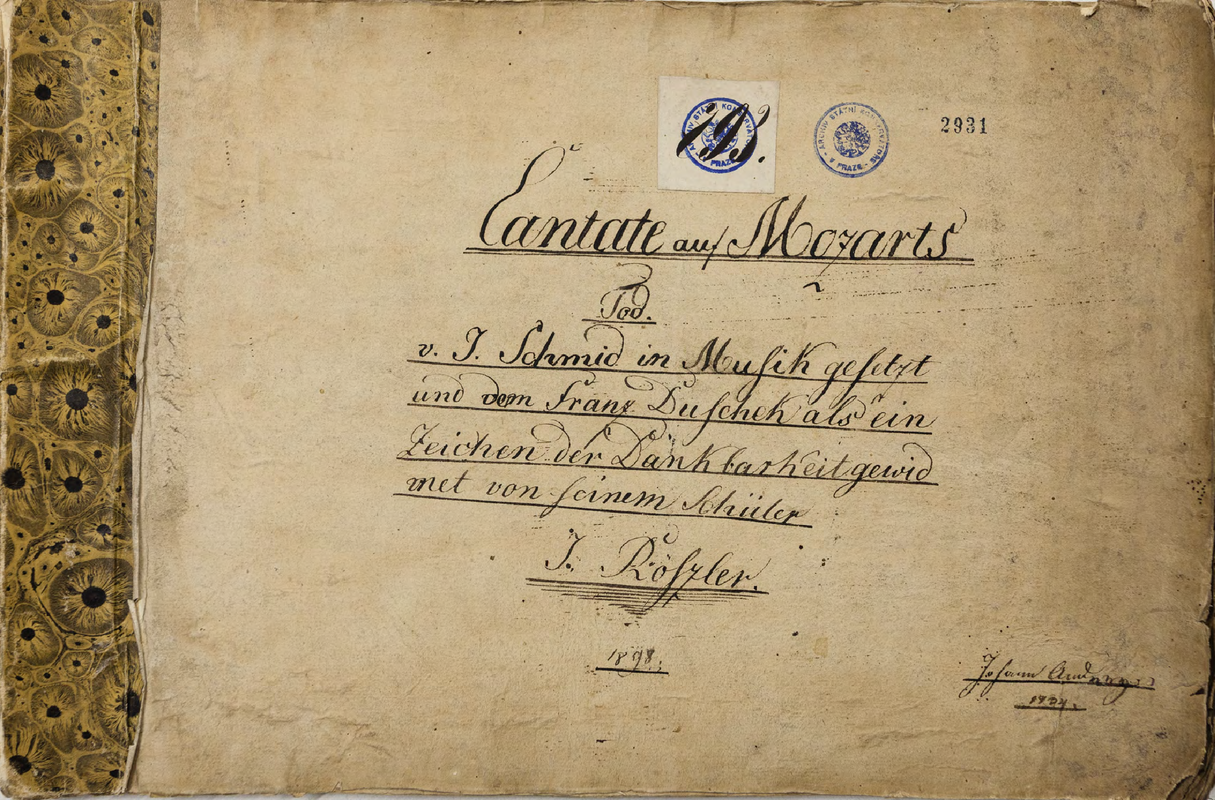 193.
ARCHIV STÁTNÍ KONSERVATOŘE V PRAZE
2931
Cantate auf Mozarts
Tod.
v. J. Schmid in Musik gesetzt
und dem Franz Duschek als ein
Zeichen der Dankbarkeit gewid
met von seinem Schüler
J. Röszler.
Johann